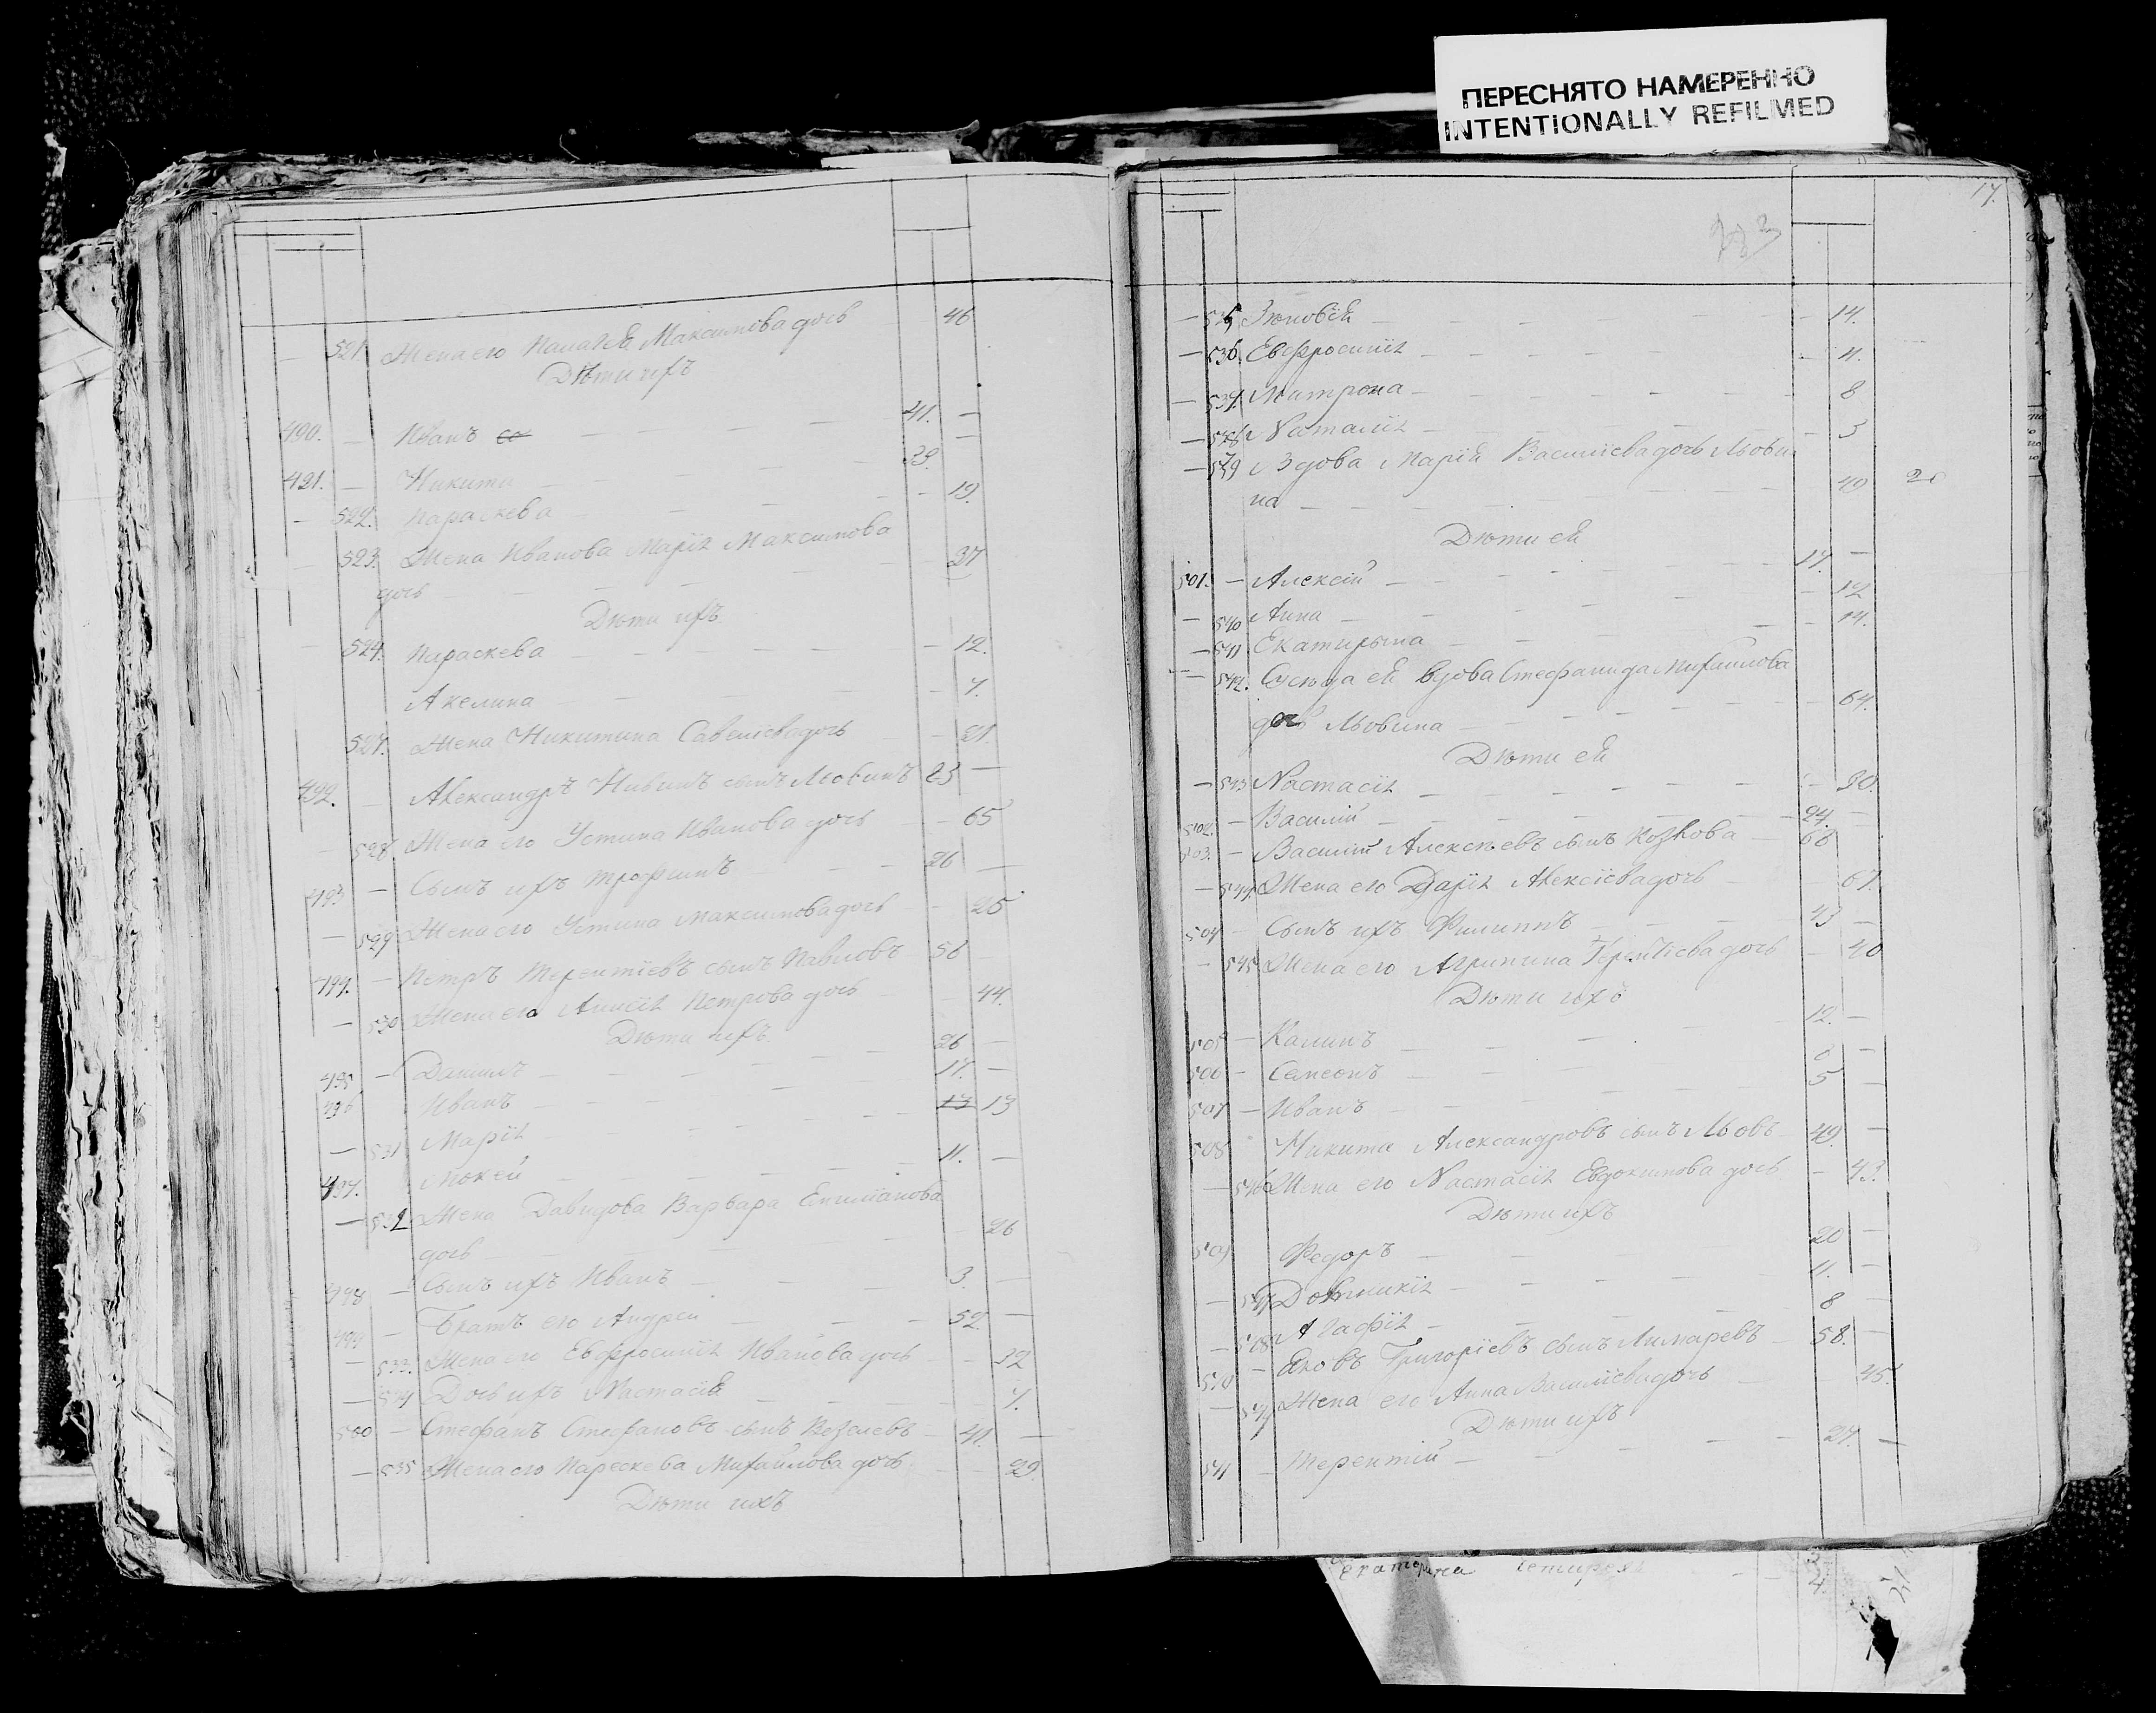 ПЕРЕСНЯТО НАМЕРЕННО
INTENTIONALLY REFILMED
521 Жена его Палагея Максимова дочь 46
Дѣти ихъ
490. Иванъ 41.
491. Никита 39.
522. Параскева 19.
523. Жена Иванова Марія Максимова
дочь 37
Дѣти ихъ
524. Параскева 12.
Акелина 7.
527. Жена Никитина Савеліева дочь 21.
492. Александръ сынъ Львовъ 23
528. Жена его Устина Иванова дочь 65
493 Сынъ ихъ Трофимъ 26
529 Жена его Устина Максимова дочь 25
494. Петръ Терентіевъ сынъ Павловъ 56
530 Жена его Анисія Петрова дочь 44.
Дѣти ихъ
495 Данилъ 26
496 Иванъ 17.
531 Марія 13 13
497. Мокей 11.
532 Жена Давидова Варвара
дочь 26
498 Сынъ ихъ Иванъ 3
499 Братъ его Андрей 52.
533. Жена его Евфросинія Иванова дочь 32
534 Дочь ихъ Настасія 7.
500 Стефанъ Стефановъ сынъ 41.
535 Жена его Парескева Михайлова дочь 29.
Дѣти ихъ
17.
Зіновій 14.
536. Евфросинія 11.
537. Матрона 8
538 Наталія 3
539 Вдова Марія Василіева дочь Львови
на 49
Дѣти ей
501. Алексій 17.
540 Анна 12
541 Екатирына 14.
542. вдова Стефанида Михайлова
дочь Львовина 64.
Дѣти ей
543 Настасія 30.
502. Василій 24
503. Василій Алексѣевъ сынъ Козкова 68
544 Жена его Дарія Алексіева дочь 67.
504 Сынъ ихъ Филиппъ 43
545 Жена его Агрипина дочь 40
Дѣти ихъ
505 Калинъ 12.
506 Самсонъ
507 Иванъ 5
508 Никита Александровъ сынъ Львовъ 49.
546 Жена его Настасія Евдокимова дочь 43.
Дѣти ихъ
509 Федоръ 20
547 Домникія 11.
548 Агафія 8
510 Яковъ Григоріевъ сынъ Лимаревъ 58.
549 Жена его Анна Василіева дочь 45.
Дѣти ихъ
511 Терентій 27.
Екатерина